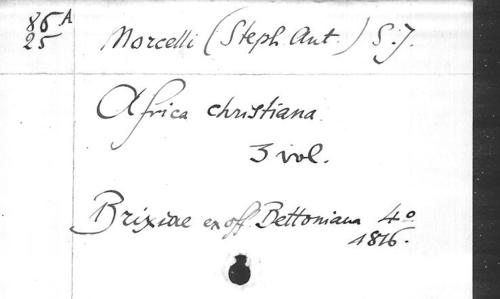 86 A
25
Morcelli (Steph. Ant.) S.J.
Africa christiana
3 vol.
Brixiae ex off. Bettoniana 4º
1816.